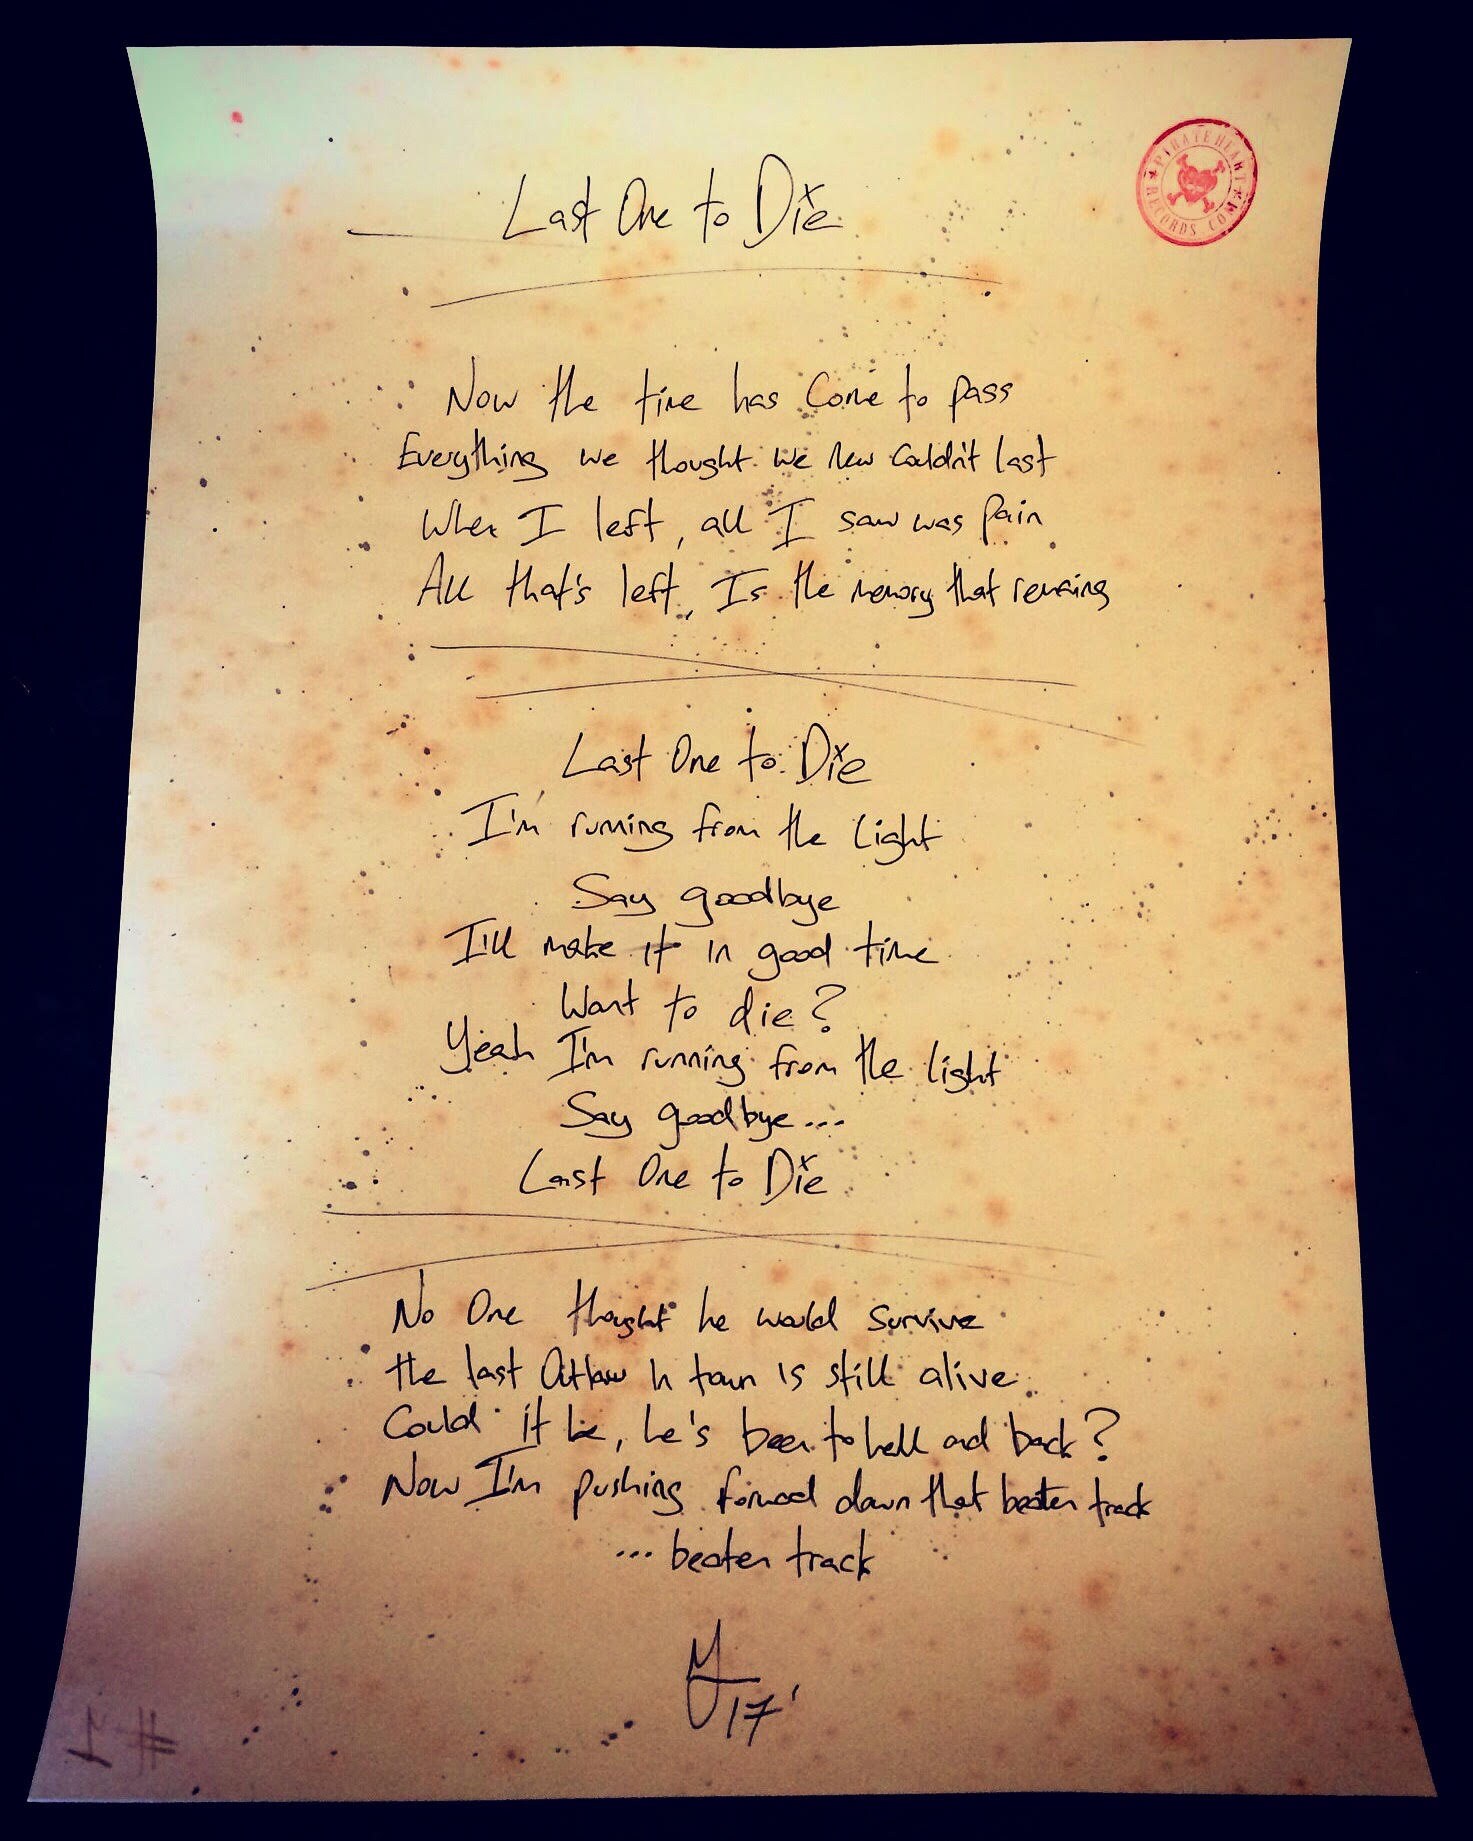 Last One to Die
PIRATE HEART RECORDS.COM
Now the time has Come to pass
Everything we thought we new Couldn't last
When I left, all I saw was pain
All that's left, Is the memory that remains
Last One to Die
I'm running from the Light
Say goodbye
I'll make it in good time
Want to die?
Yeah I'm running from the light
Say goodbye...
Last One to Die
No One thought he would survive
the last Outlaw in town is still alive
Could it be, he's been to hell and back?
Now I'm pushing forward down that beaten track
... beaten track
17'